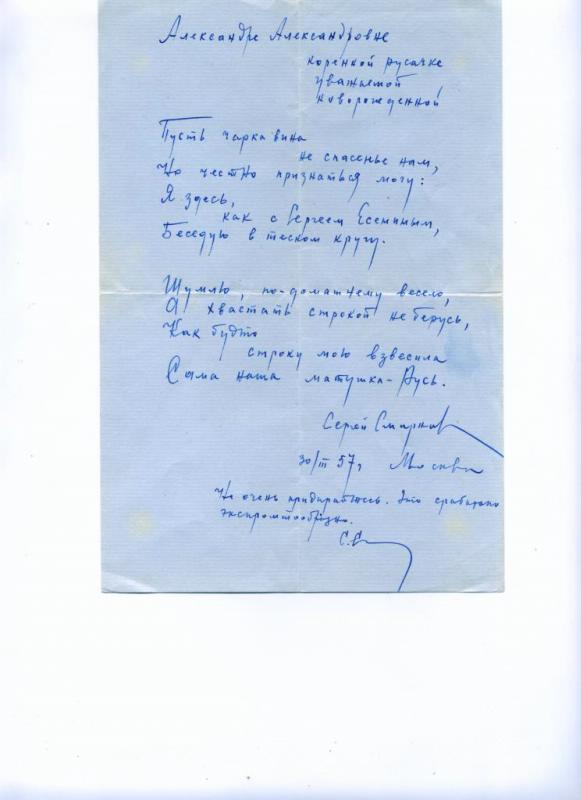 Александре Александровне
коренной русачке,
уважаемой
новорожденной
Пусть чарка вина
не спасенье нам,
Но честно признаться могу:
Я здесь,
как с Сергеем Есениным,
Беседую в тесном кругу.
Шумлю, по-домашнему весело,
А хвастать строкой не берусь,
Как будто
строку мою взвесила
Сама наша матушка-Русь.
Сергей Смирнов
30/III 57 г. Москва
Не очень придирайтесь. Это сработано
экспромтообразно.
С.С